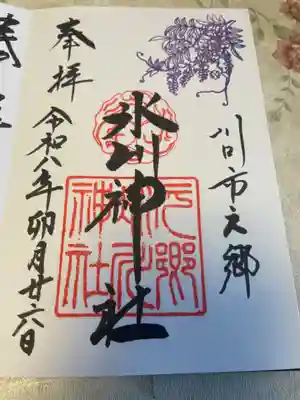 川口市元郷
氷川神社
元郷
神社
奉拝
令和八年卯月廿六日